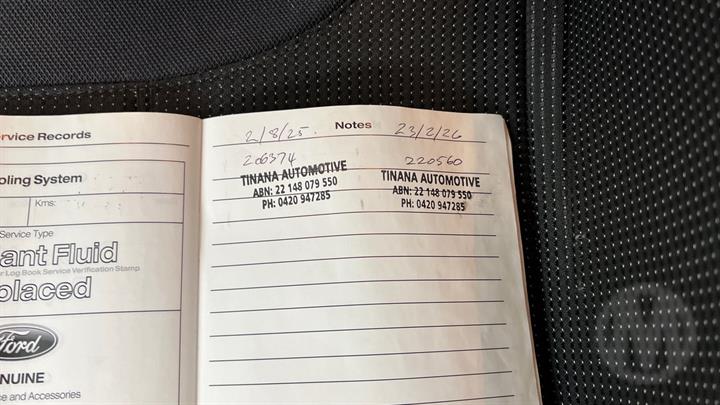 rvice Records
oling System
Kms:
Service Type
ant Fluid
r Log Book Service Verification Stamp
placed
Ford
NUINE
ce and Accessories
Notes
2/8/25.
206374
TINANA AUTOMOTIVE
ABN: 22 148 079 550
PH: 0420 947285
23/2/26
220560
TINANA AUTOMOTIVE
ABN: 22 148 079 550
PH: 0420 947285